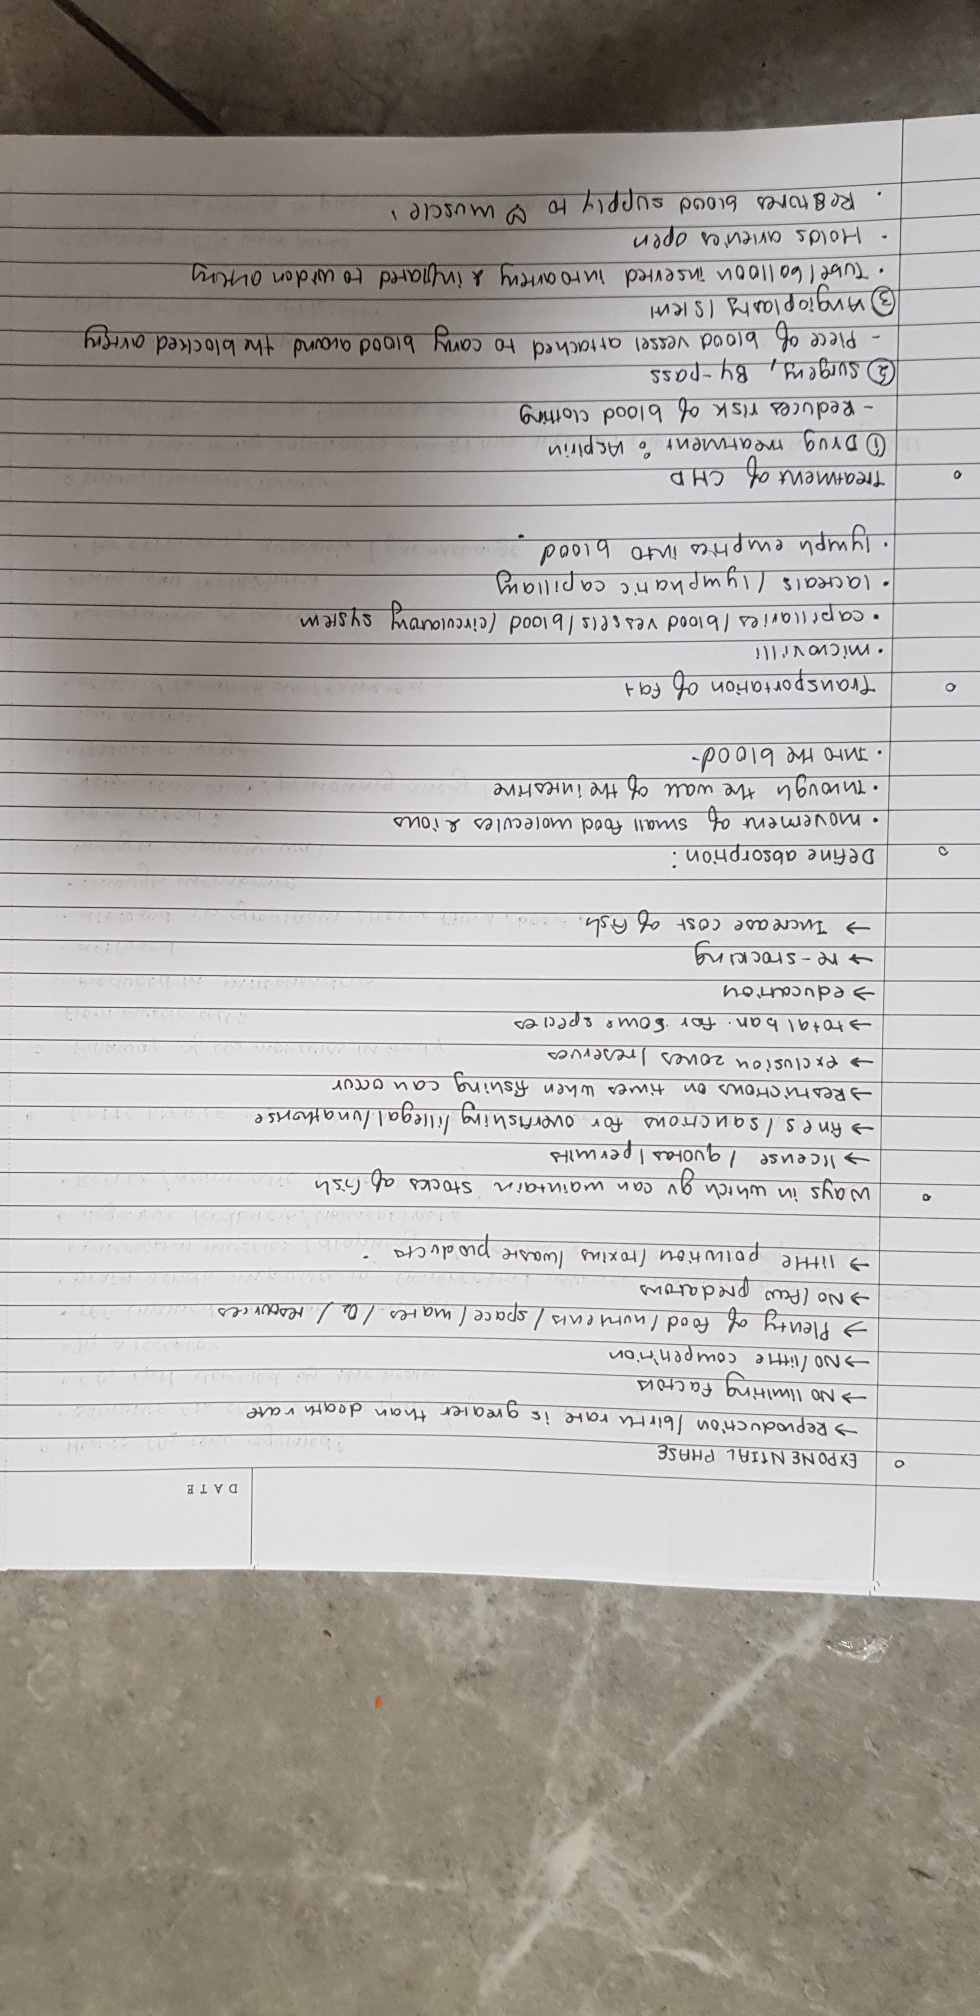 DATE
EXPONENTIAL PHASE
→ Reproduction /birth rate is greater than death rate
→ No limiting factors
→ No/little competition
→ Plenty of food/nutrients/space/mates/O2/resources
→ No/few predators
→ little pollution/toxins/waste products.
Ways in which gv can maintain stocks of fish
→ license / quotas/permits
→ fines/sanctions for overfishing/illegal/unathorise
→ Restrictions on times when fishing can occur
→ exclusion zones/reserves
→ total ban for some species
→ education
→ re-stocking
→ Increase cost of fish.
Define absorption:
• movement of small food molecules & ions
• Through the wall of the intestine
• Into the blood-
Transportation of fat
• microvilli
• capillaries/blood vessels/blood/circulatory system
• lacteals/lymphatic capillary
• lymph empties into blood.
Treatment of CHD
① Drug treatment: Aspirin
- Reduces risk of blood clotting
② surgery, By-pass
- Piece of blood vessel attached to carry blood around the blocked artery
③ Angioplasty/stent
• Tube/balloon inserted into artery & inflated to widen artery
• Holds arteries open
• Restores blood supply to ♡ muscle.